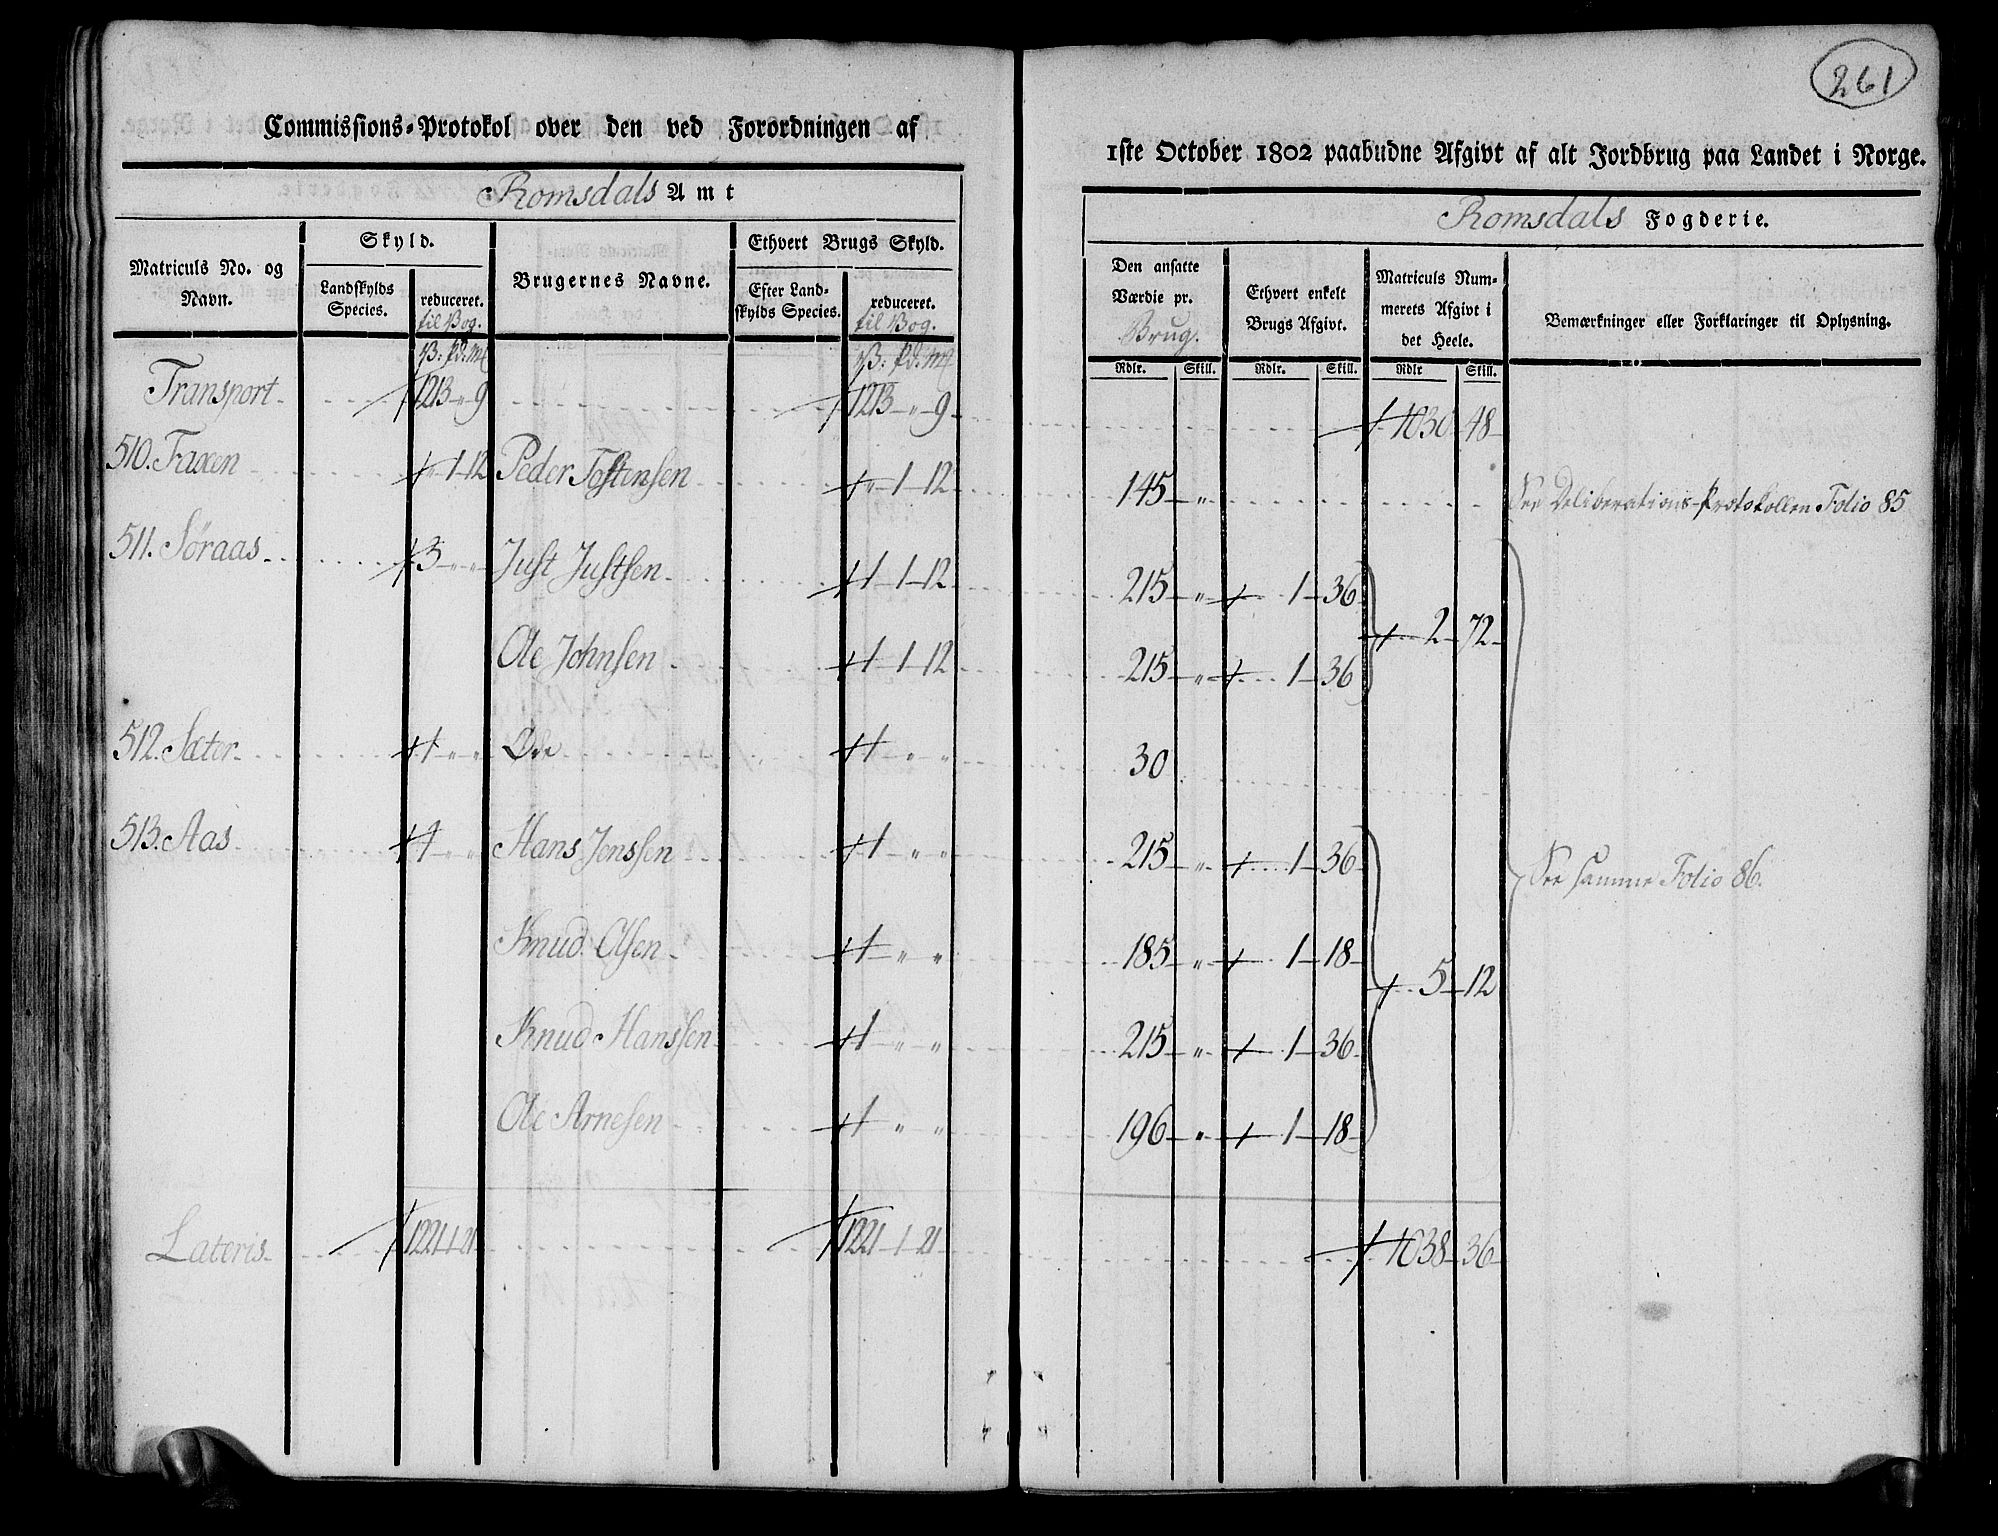 261
Commissions-Protokol over den ved Forordningen af
1ste October 1802 paabudne Afgivt af alt Jordbrug paa Landet i Norge.
Romsdals Amt
Romsdals Fogderie.
Matriculs No. og Navn.
Skyld.
Landskylds Species.
reduceret. til Vog.
Brugernes Navne.
Ethvert Brugs Skyld.
Efter Landskylds Species.
reduceret. til Vog.
Den ansatte Værdie pr. Brug.
Ethvert enkelt Brugs Afgivt.
Matriculs Nummerets Afgivt i det Heele.
Bemærkninger eller Forklaringer til Oplysning.
V: Pd. M V: Pd. M Rdlr. Skill. Rdlr. Skill. Rdlr Skill.
Transport. 1213 „ 9 1213 „ 9 1030 48
510. Faxen 1 12 Peder Tostensen „ 1 12 145 „ See Deliberations-Protokollen Folio 85
511. Søraas 3 „ „ Just Justsen 1 1 12 215 „ 1 36
2 72
Ole Johnsen 1 1 12 215 „ 1 36
512. Sæter 1 „ „ Øde 1 „ „ 30
513. Aas 4 „ „ Hans Jenssen 1 „ „ 215 „ 1 36
See samme Folio 86.
Knud Olsen 1 „ „ 185 „ 1 18
5 12
Knud Hanssen 1 „ „ 215 „ 1 36
Ole Arnesen 1 „ „ 196 „ 1 18
Lateris 1221 1 21 1221 1 21 1038 36